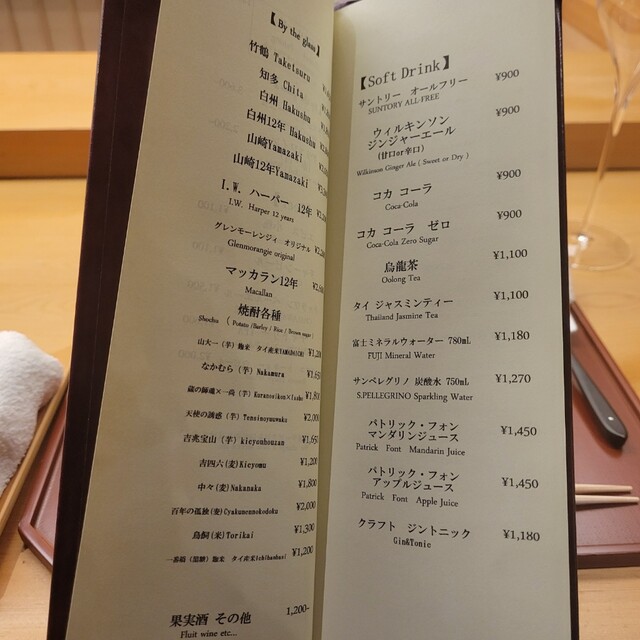 【By the glass】
竹鶴 Taketsuru
知多 Chita
白州 Hakushu
白州12年 Hakushu
山崎Yamazaki
山崎12年Yamazaki
I.W. ハーパー 12年
I.W. Harper 12 years
グレンモーレンジィ オリジナル
Glenmorangie original
マッカラン12年
Macallan
焼酎各種
Shochu ( Potato /Barley / Rice / Brown sugar )
山大一（芋）麹米 タイ産米 ¥1,200
なかむら（芋）Nakamura ¥1,650
蔵の師魂×一尚（芋） ¥1,800
天使の誘惑（芋） ¥2,000
吉兆宝山（芋）kicyouhouzan ¥1,650
吉四六(麦)Kicyomu ¥1,200
中々(麦)Nakanaka ¥1,800
百年の孤独(麦)Cyakunennokodoku ¥2,000
鳥飼(米)Torikai ¥1,300
麹米 タイ産米 ¥1,200
果実酒 その他 1,200-
Fluit wine etc...
【Soft Drink】
サントリー オールフリー ¥900
SUNTORY ALL-FREE
ウィルキンソン ¥900
ジンジャーエール
(甘口or辛口)
Wilkinson Ginger Ale ( Sweet or Dry )
コカ コーラ ¥900
Coca-Cola
コカ コーラ ゼロ ¥900
Coca-Cola Zero Sugar
烏龍茶 ¥1,100
Oolong Tea
タイ ジャスミンティー ¥1,100
Thailand Jasmine Tea
富士ミネラルウォーター 780mL ¥1,180
FUJI Mineral Water
サンペレグリノ 炭酸水 750mL ¥1,270
S.PELLEGRINO Sparkling Water
パトリック・フォン ¥1,450
マンダリンジュース
Patrick Font Mandarin Juice
パトリック・フォン ¥1,450
アップルジュース
Patrick Font Apple Juice
クラフト ジントニック ¥1,180
Gin&Tonic